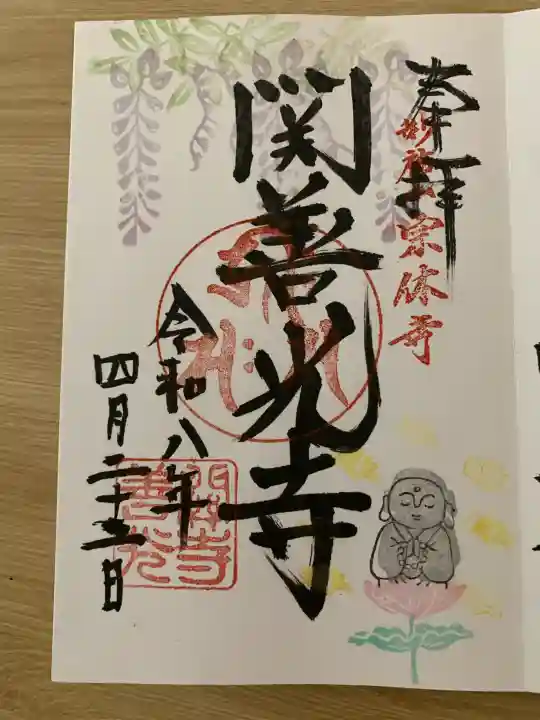 奉拝
妙祐山宗休寺
関善光寺
令和八年
四月二十五日
関善光寺